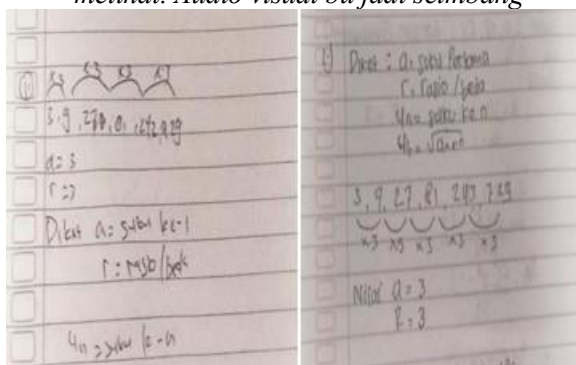 melihat. Audio visual bu jadi seimbang
①
x3 x3 x3
3, 9, 27, 81, 243, 729
a = 3
r = 3
Diket a = suku ke-1
r = rasio / beda
Un = suku ke-n
1) Diket : a = suku Pertama
r = rasio / beda
Un = suku ke n
3, 9, 27, 81, 243, 729
x3 x3 x3 x3 x3
Nilai a = 3
r = 3